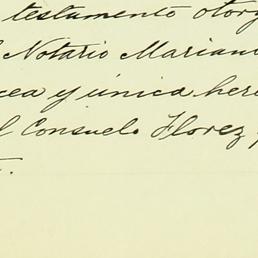 testamento otorg
Notario Mariano
cea y única here
l Consuelo Florez